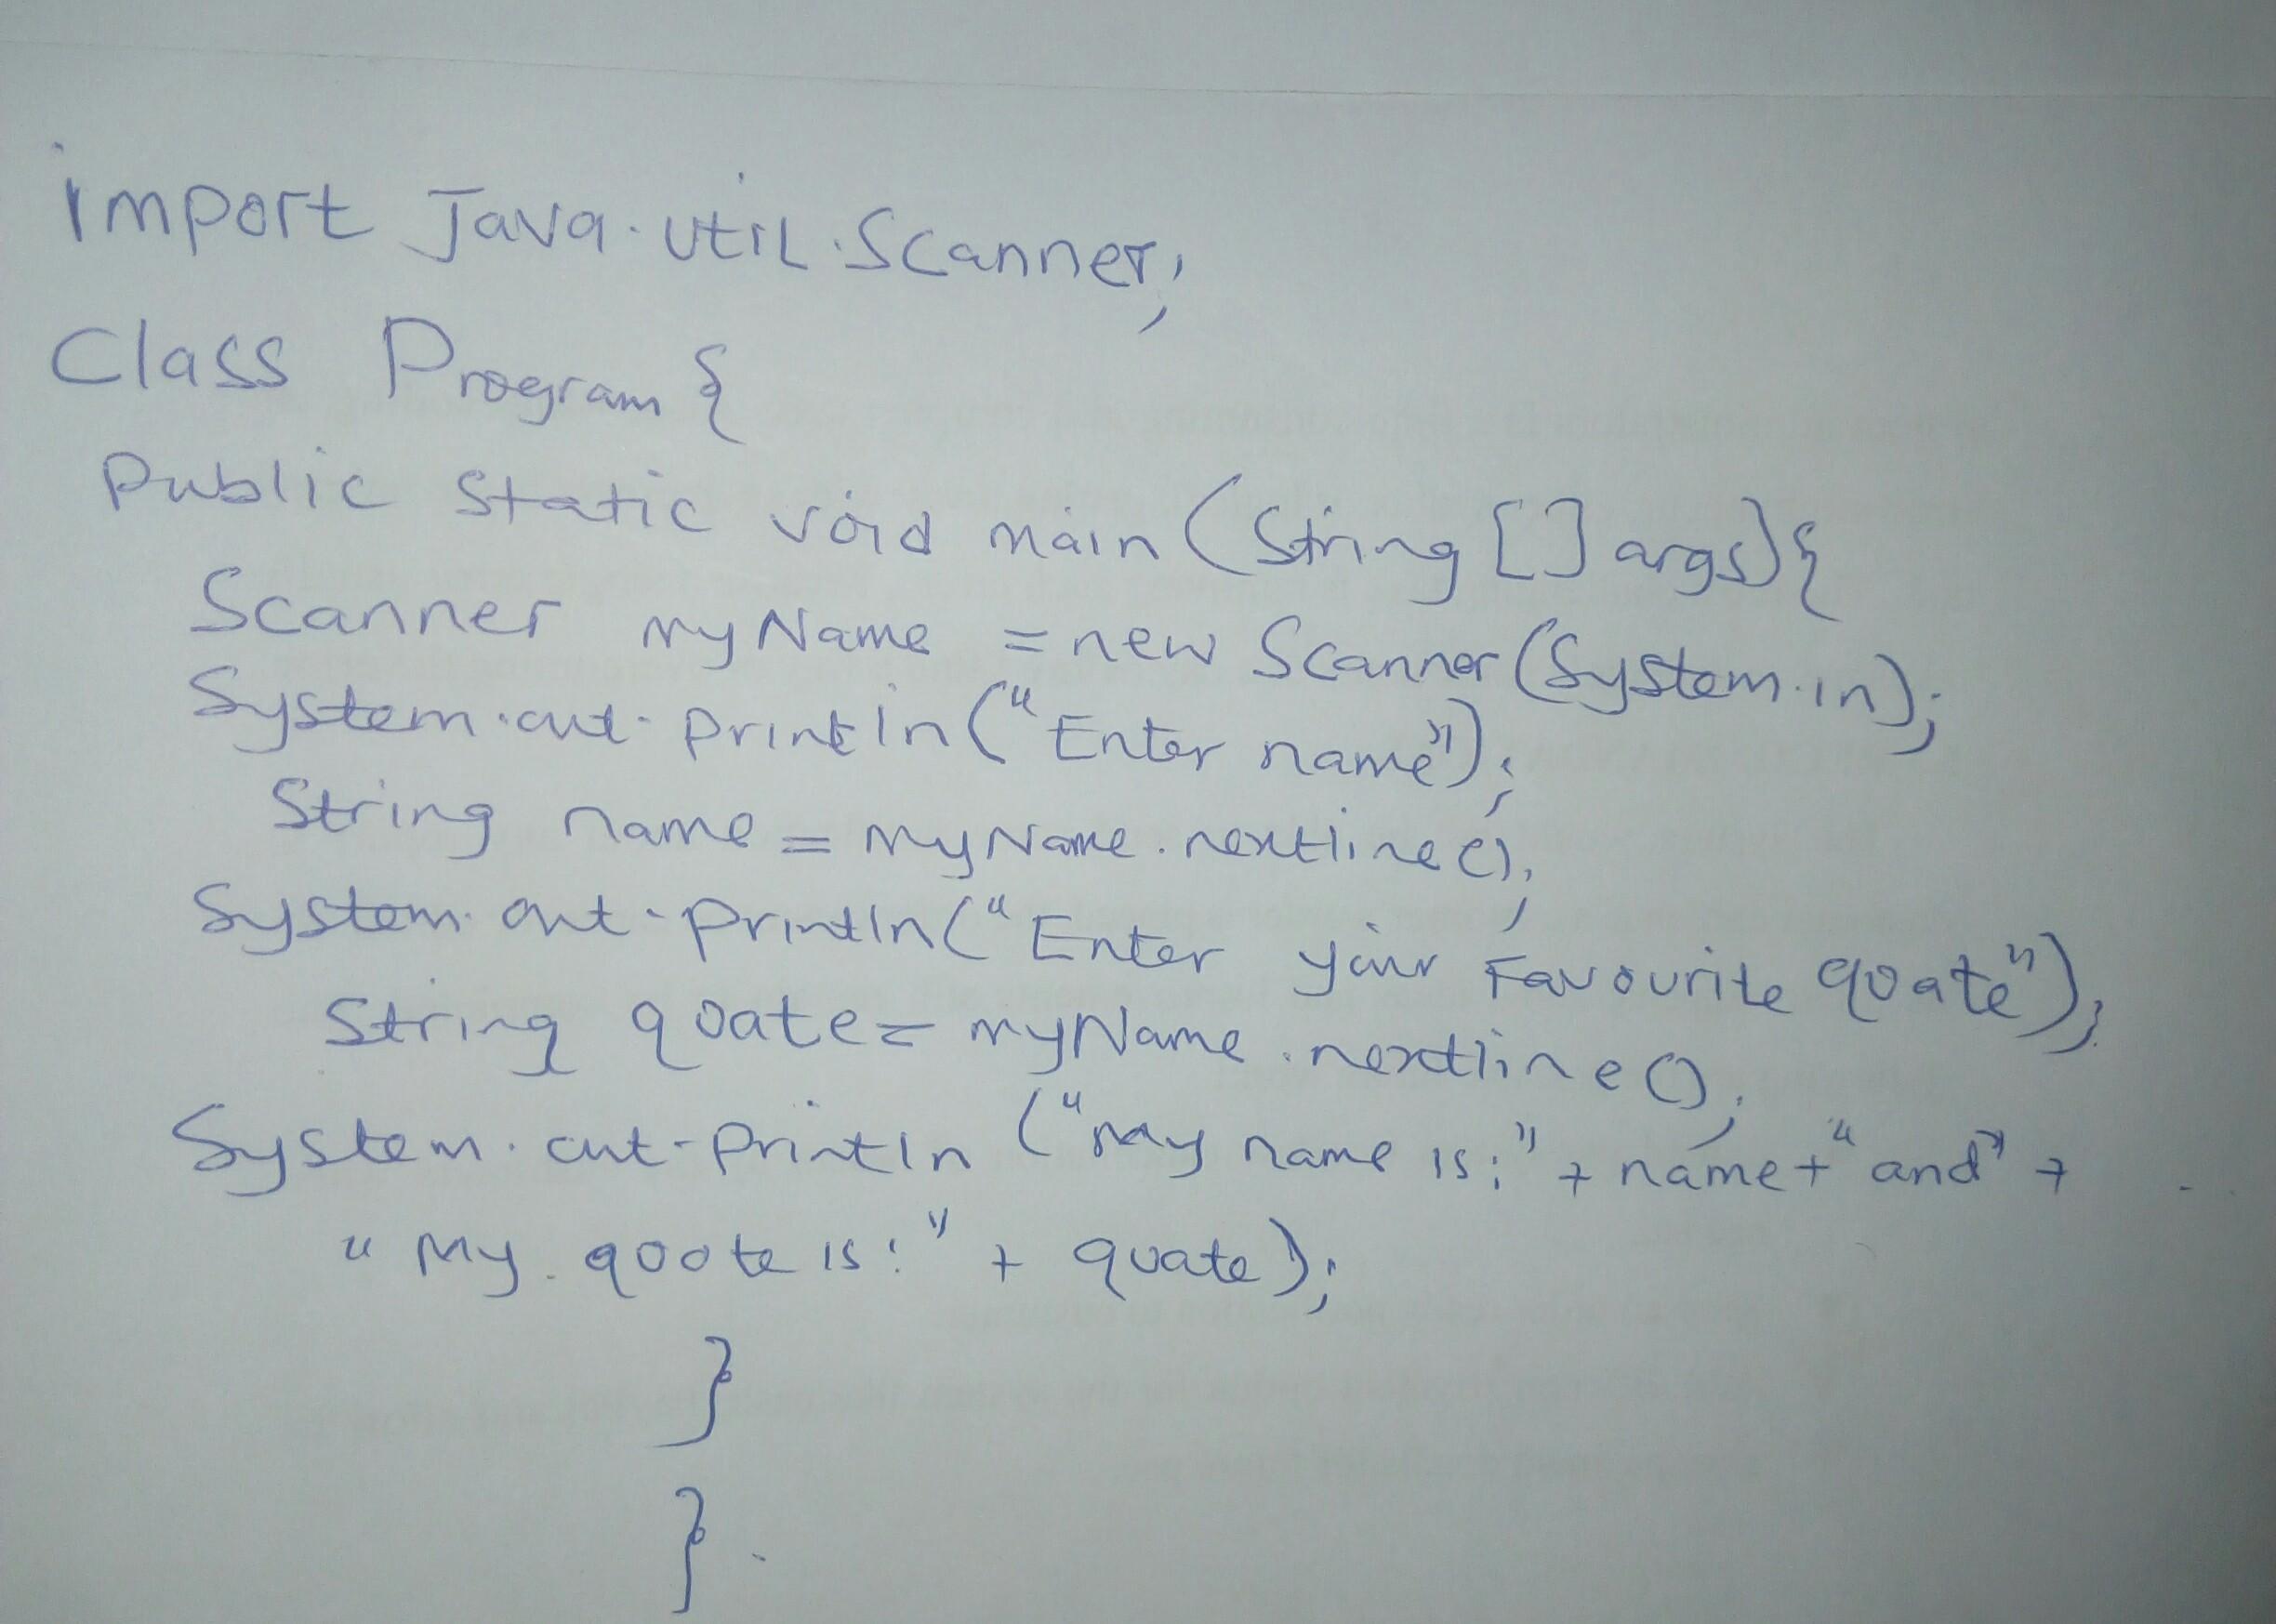 import Java.util.Scanner;
Class Program {
Public Static void main (String [] args) {
Scanner myName = new Scanner (System.in);
System.out.println ("Enter name");
String name = myName.nextline();
System.out.println ("Enter your Favourite quate");
String quate = myName.nextline();
System.out.println ("My name is:" + name + "and" +
"My quote is:" + quate);
}
}